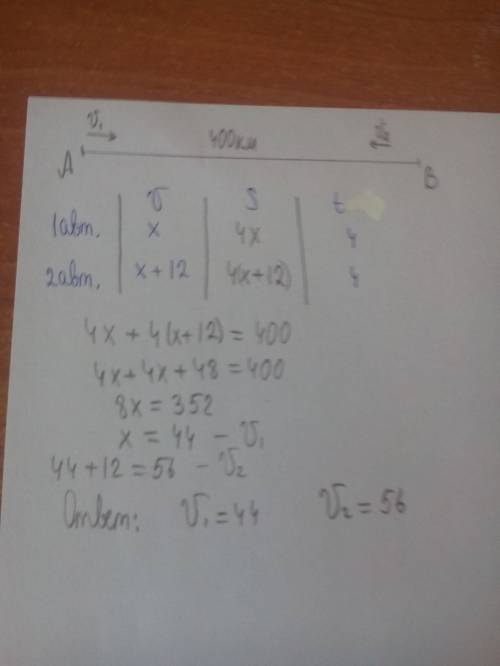 V₁ 400км V₂
A B
V S t
1авт. x 4x 4
2авт. x+12 4(x+12) 4
4x + 4(x+12) = 400
4x+4x+48=400
8x=352
x = 44 - V₁
44+12=56 - V₂
Ответ: V₁=44 V₂=56